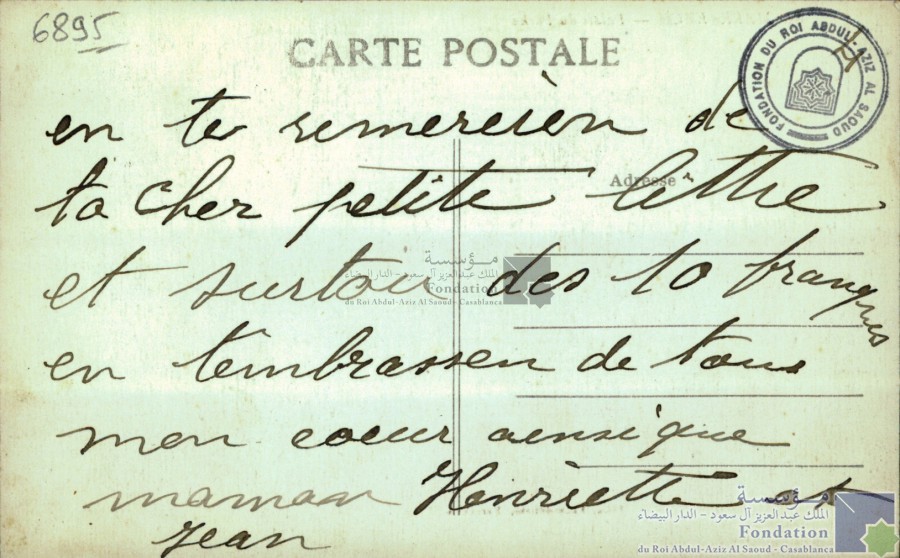 6895
CARTE POSTALE
FONDATION DU ROI ABDUL-AZIZ AL SAOUD
en te remercien de
Adresse
ta cher petite lettre
et surtou des 10 franques
مؤسسة
الملك عبد العزيز آل سعود - الدار البيضاء
Fondation
du Roi Abdul-Aziz Al Saoud - Casablanca
en t'embrassen de tous
mon coeur ainsi que
maman Henriette et
Jean
مؤسسة
الملك عبد العزيز آل سعود - الدار البيضاء
Fondation
du Roi Abdul-Aziz Al Saoud - Casablanca